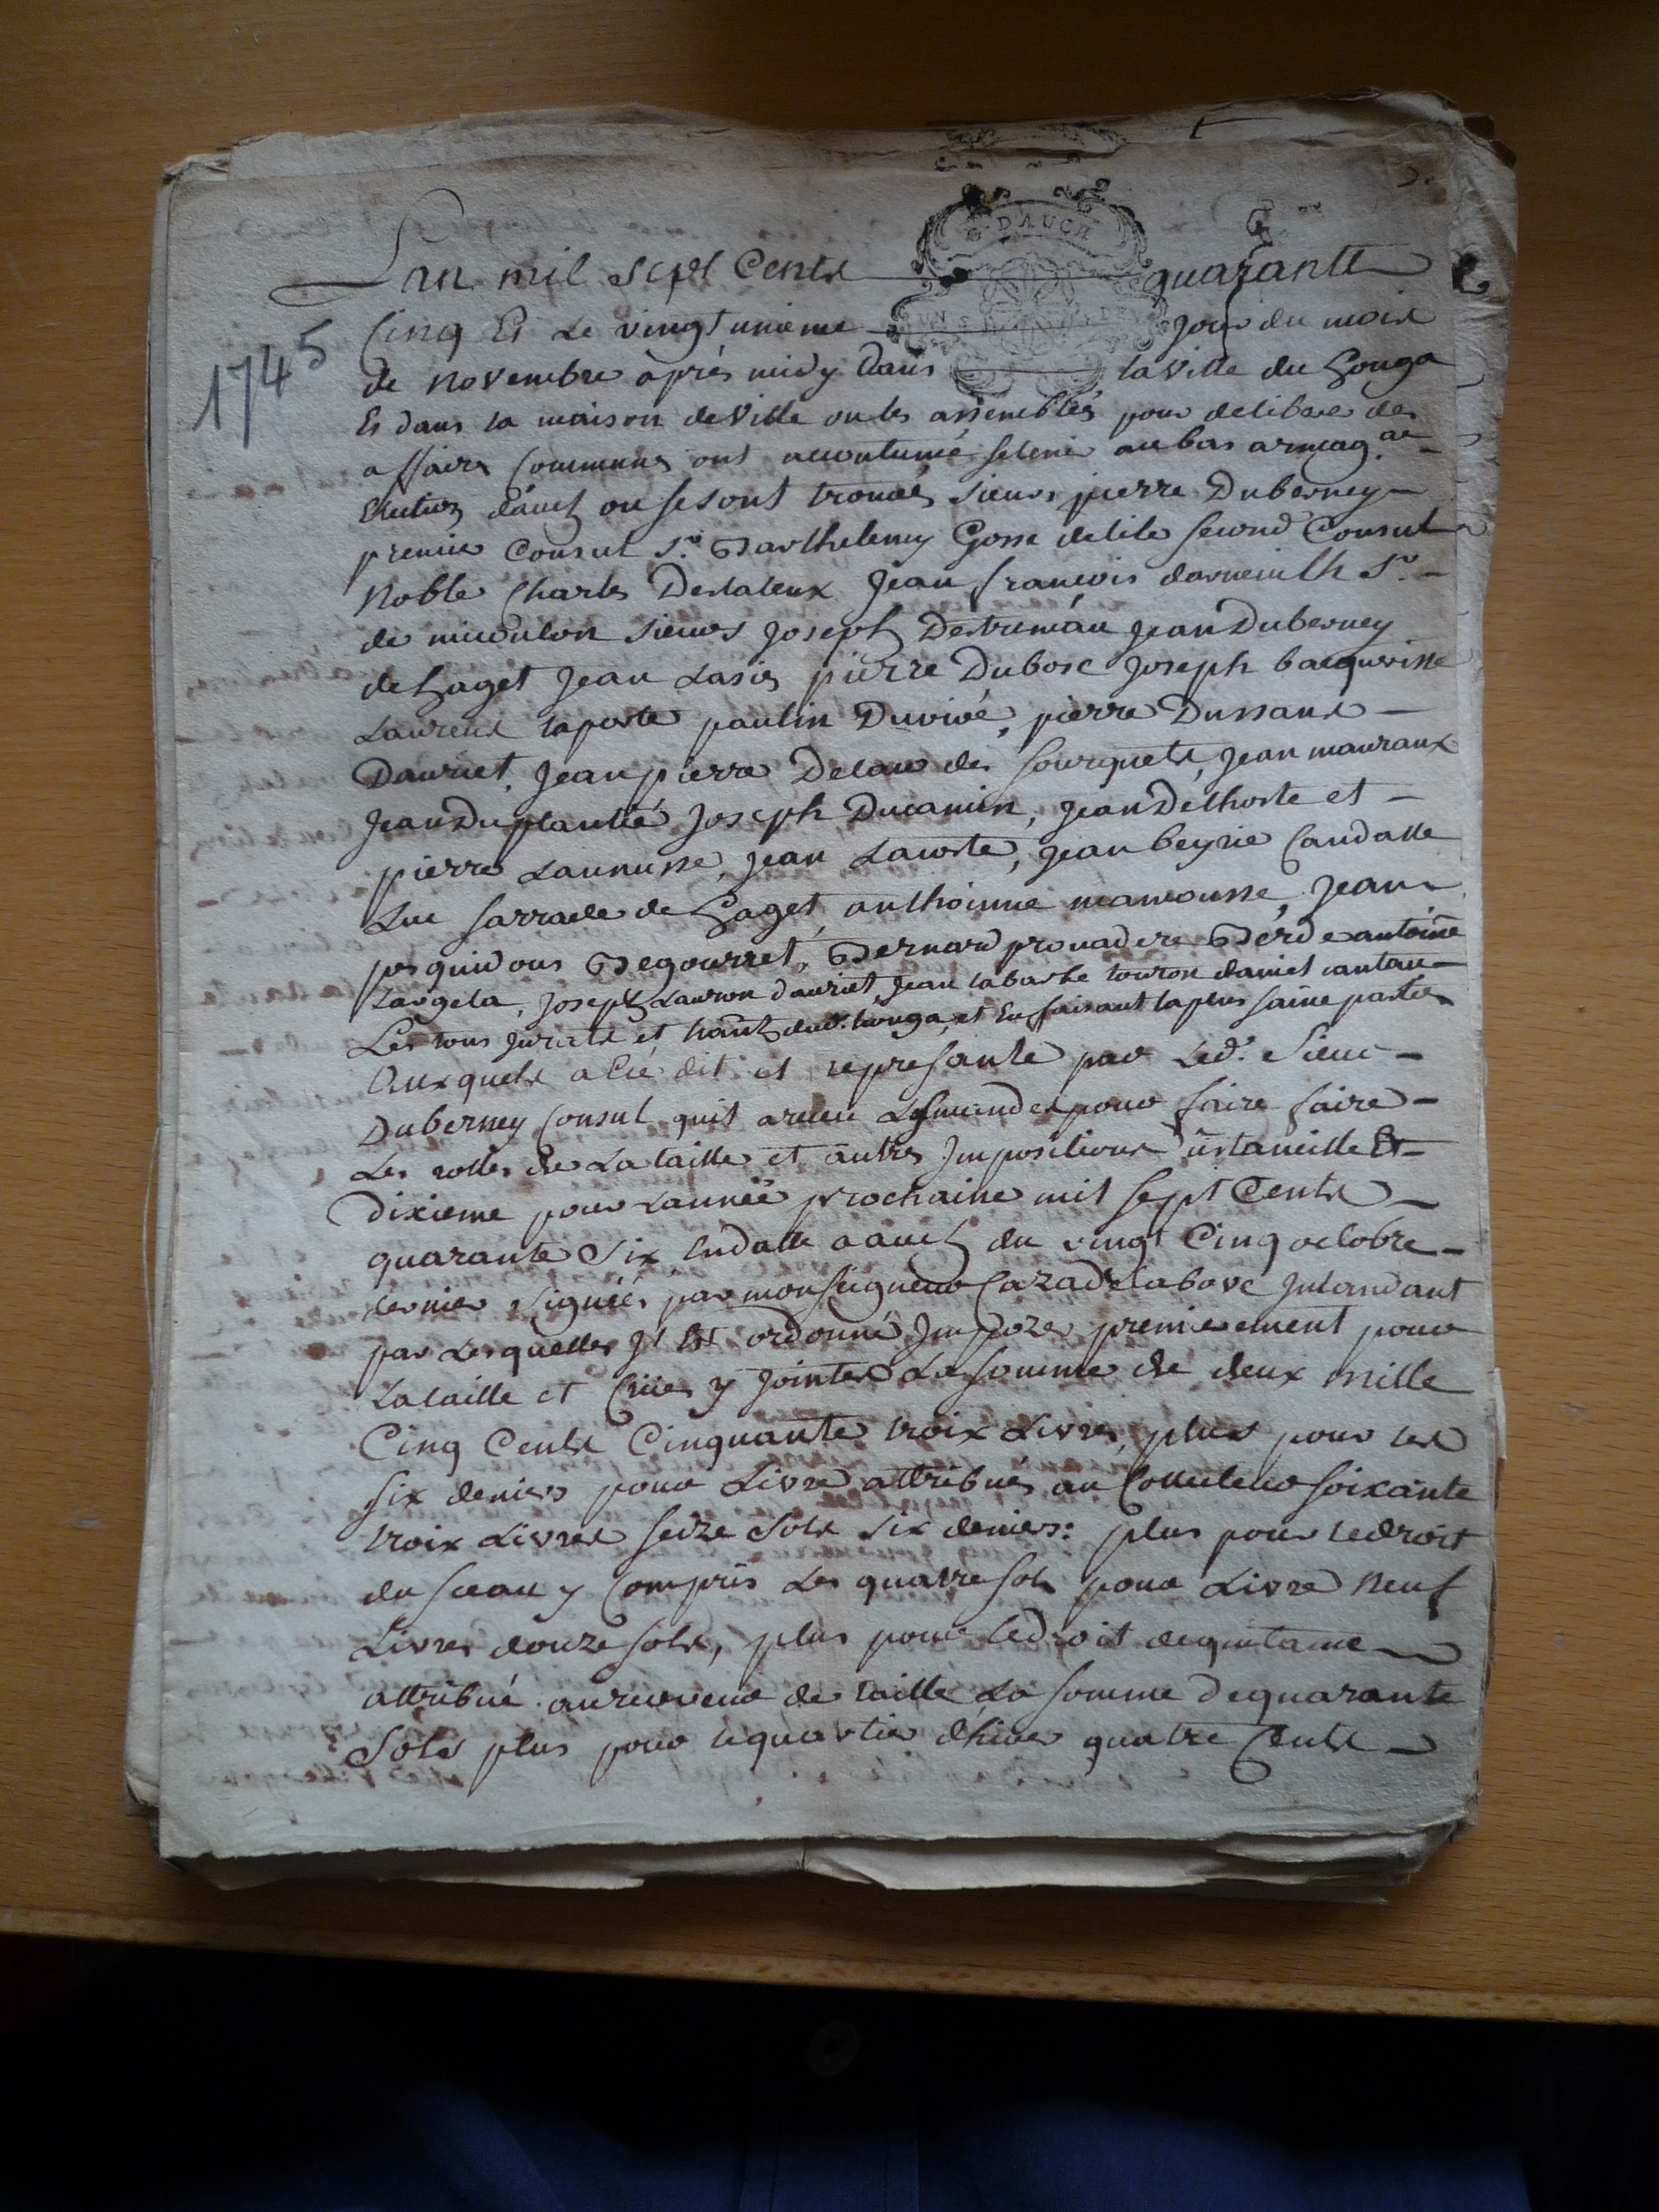 G. DAUCH
Lan mil sept Cents quarante
1745
Cinq Et Le vingt unieme jour du mois
de novembre après midy dans la ville du houga
Et dans la maison de Ville ou les assemblées pour deliberer des
affaires Communes ont accoutumé se tenir au bas armag.ac
Election d'auch ou se sont trouvés sieurs pierre Duberney
premier Consul Sr. Barthelemy Gosse delile second Consul
Noble Charles Deslaleux Jean françois
de sieurs Joseph Destremau Jean Duberney
de haget Jean Lasies pierre Dubosc Joseph bacquerisse
Laurens laporte paulin Duvivé, pierre Dussans
Dauriet, Jean pierre Delau des fourquets, Jean mauraux
Jean Duplantié Joseph Ducamin, Jean Delhoste et
pierre Lannusse, Jean Lacoste, Jean beyrie Candalle
Luc sarrade de haget, anthoinne mamousse, Jean
pesquidous Begourret, Bernard prouadere Berde antoine
Largela, Joseph Lauron dauriet Jean labarbe touron daniet
Les tous jurats et du d. houga, et En faisant la plus saine partie
Auxquels a Eté dit et represante par Led. Sieur
Duberney Consul quil a receu Les mandes pour faire faire
Les rolles de La taille et autres Impositions ustancille Et
Dixieme pour Lannée prochaine mil sept Cents
quarante Six, En datte a auch du vingt Cinq octobre
dernier signées par monseigneur Cazadelabove Intandant
par Lesquelles Il Est ordonné Impozer premierement pour
La taille et Crües y jointes La somme de deux mille
Cinq Cents Cinquante troix Livres, plus pour les
six deniers pour Livre attribués au Collecteur soixante
troix Livres seize sols six deniers: plus pour le droit
du sceau y Compris Les quatre sols pour Livre neuf
Livres douze sols, plus pour le droit de quitance
attribué au receveur de taille La somme de quarante
Sols plus pour le quartier d'hiver quatre Cents